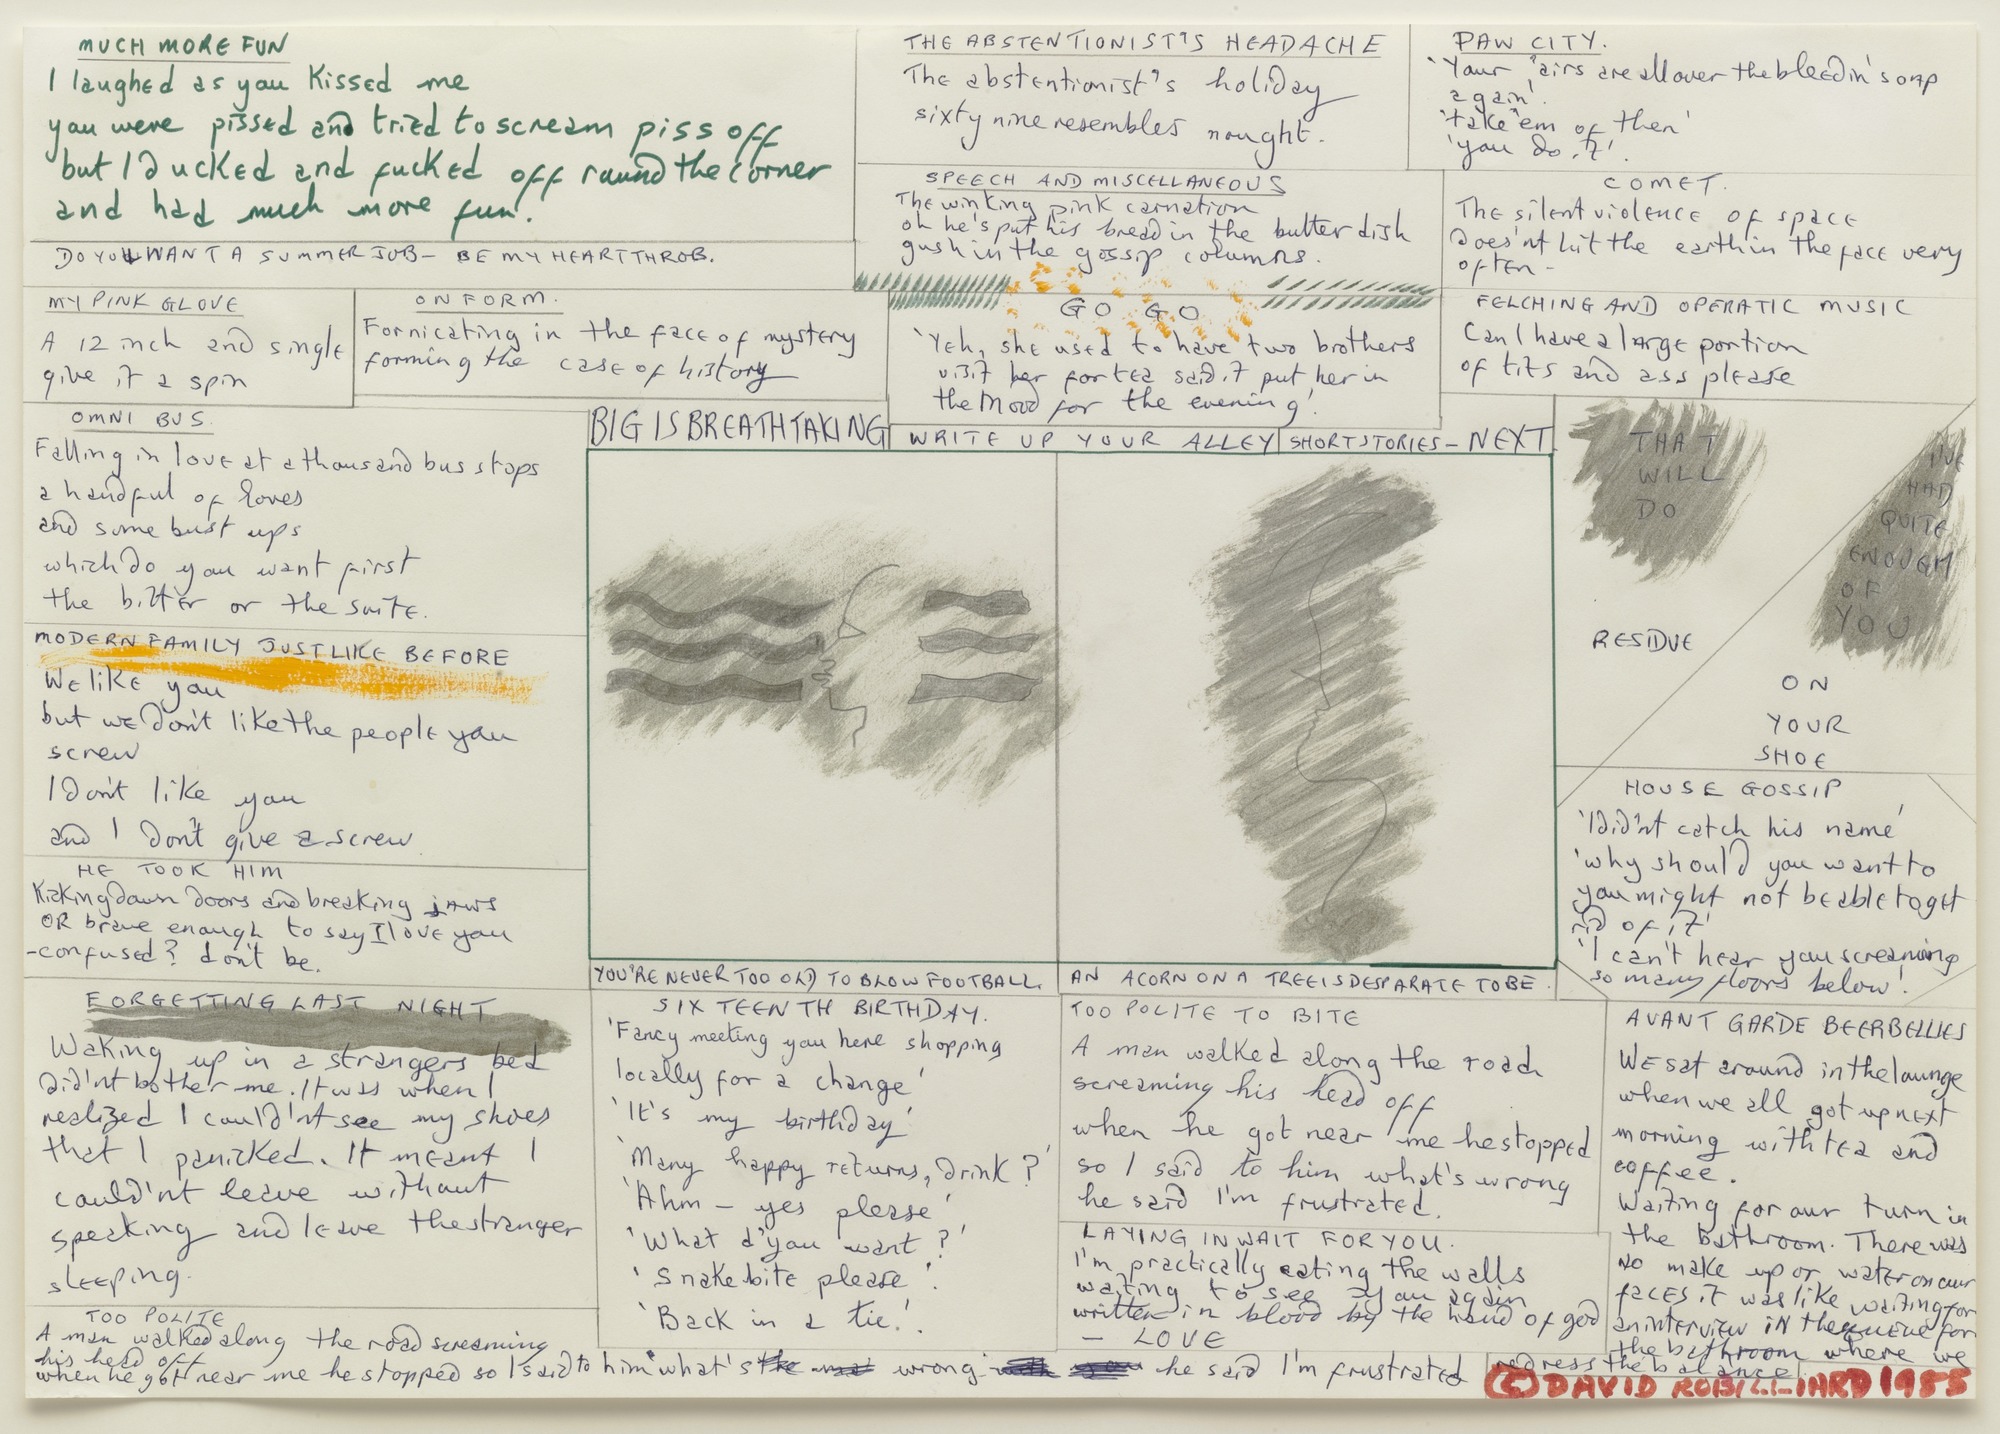 MUCH MORE FUN
I laughed as you kissed me
you were pissed and tried to scream piss off
but I ducked and fucked off round the corner
and had much more fun.
DO YOU WANT A SUMMER JOB – BE MY HEARTTHROB.
MY PINK GLOVE
A 12 inch and single
give it a spin
ON FORM.
Fornicating in the face of mystery
forming the case of history
OMNI BUS.
Falling in love at a thousand bus stops
a handful of loves
and some bust ups
which do you want first
the bitter or the suite.
MODERN FAMILY JUST LIKE BEFORE
We like you
but we don't like the people you
screw
I don't like you
and I don't give a screw.
HE TOOK HIM
Kicking down doors and breaking jaws
OR brave enough to say I love you
-confused? don't be.
FORGETTING LAST NIGHT
Waking up in a strangers bed
did'nt bother me. It was when I
realized I could'nt see my shoes
that I panicked. It meant I
could'nt leave without
speaking and leave the stranger
sleeping.
TOO POLITE
A man walked along the road screaming
his head off
when he got near me he stopped so I said to him "what's wrong he said I'm frustrated
THE ABSTENTIONIST'S HEADACHE
The abstentionist's holiday
sixty nine resembles nought.
SPEECH AND MISCELLANEOUS
The winking pink carnation
oh he's put his bread in the butter dish
gush in the gossip columns.
GO GO
'Yeh, she used to have two brothers
visit her for tea said it put her in
the mood for the evening'.
PAW CITY.
'Your 'airs are all over the bleedin' soap
again'.
'take 'em of then'
'you do it'.
COMET.
The silent violence of space
Does'nt hit the earth in the face very
often –
FELCHING AND OPERATIC MUSIC
Can I have a large portion
of tits and ass please
BIG IS BREATHTAKING
WRITE UP YOUR ALLEY
SHORT STORIES – NEXT
THAT
WILL
DO
I'VE
HAD
QUITE
ENOUGH
OF
YOU
RESIDUE
ON
YOUR
SHOE
HOUSE GOSSIP
'I did'nt catch his name'
'why should you want to
you might not be able to get
rid of it'
'I can't hear you screaming
so many floors below'.
YOU'RE NEVER TOO OLD TO BLOW FOOTBALL.
AN ACORN ON A TREE IS DESPARATE TO BE.
SIXTEENTH BIRTHDAY.
'Fancy meeting you here shopping
locally for a change'
'It's my birthday'
'Many happy returns, drink?'
'Ahm – yes please'
'What d'you want?'
'Snakebite please.'
'Back in a tic'.
TOO POLITE TO BITE
A man walked along the road
screaming his head off
when he got near me he stopped
so I said to him what's wrong
he said I'm frustrated.
LAYING IN WAIT FOR YOU.
I'm practically eating the walls
waiting to see you again
written in blood by the hand of god
– LOVE
AVANT GARDE BEERBELLIES
We sat around in the lounge
when we all got up next
morning with tea and
coffee.
Waiting for our turn in
the bathroom. There was
no make up or water on our
faces, it was like waiting for
an interview in the queue for
the bathroom where we
redress the balance
© DAVID ROBILLIARD 1985